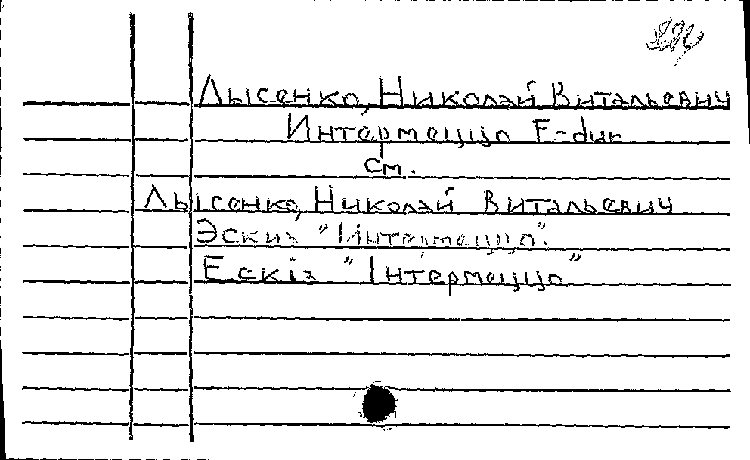 Лысенко, Николай Витальевич
Интермеццо F-dur
см.
Лысенко, Николай Витальевич
Эскиз "Интермеццо".
Ескіз "Інтермеццо"